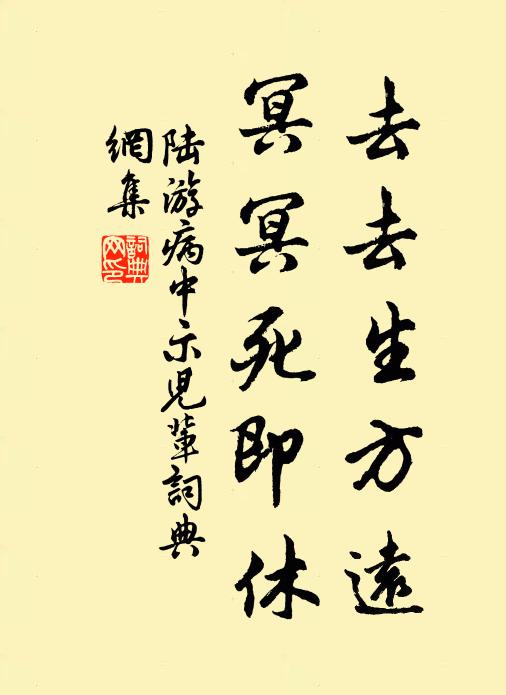 去去生方遠
冥冥死即休
陸游病中示兒輩詞典
網集
詞典網印